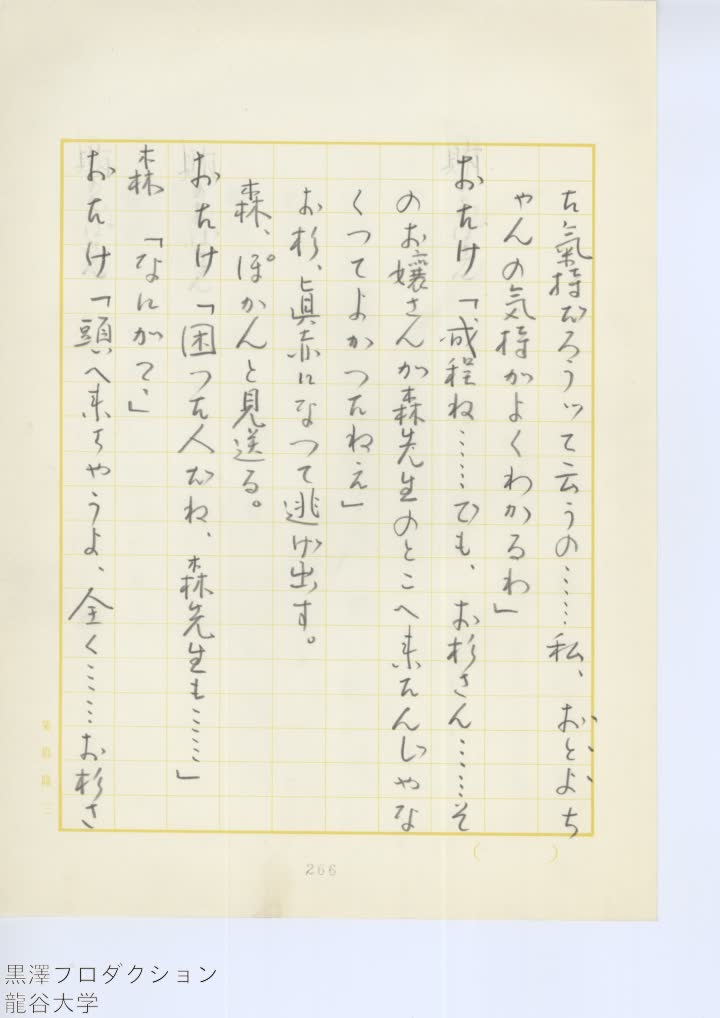 た氣持だろうッて云うの……私、おとよち
ゃんの気持がよくわかるわ」
おたけ「成程ね……でも、お杉さん……そ
のお嬢さんが森先生のとこへ来たんじゃな
くつてよかつたねえ」
お杉、眞赤になつて逃げ出す。
森、ぽかんと見送る。
おたけ「困つた人だね、森先生も……」
森「なにがで」
おたけ「頭へ来ちやうよ、全く……お杉さ
266
黒澤プロダクション
龍谷大学